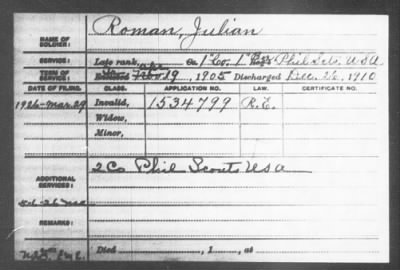 NAME OF SOLDIER: Roman, Julian
SERVICE: Late rank, Co. 1" Co. 1" Reg't Phil Scts. USA
TERM OF SERVICE: Enlisted Feb 19, 1905 Discharged Dec. 26, 1910
DATE OF FILING. CLASS. APPLICATION NO. LAW. CERTIFICATE NO.
1926-Mar. 29 Invalid, 1534799 R.E.
Widow,
Minor,
ADDITIONAL SERVICES: 2 Co Phil Scouts USA
REMARKS:
Died, 1, at